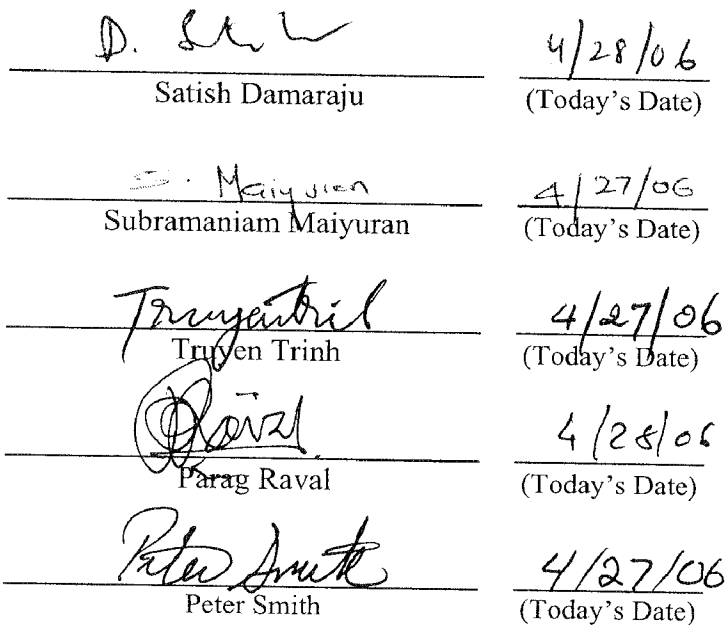 D. 4/28/06
Satish Damaraju (Today's Date)
S. Maiyuran 4/27/06
Subramaniam Maiyuran (Today's Date)
Truyentril 4/27/06
Truyen Trinh (Today's Date)
Raval 4/28/06
Parag Raval (Today's Date)
Peter Smith 4/27/06
Peter Smith (Today's Date)